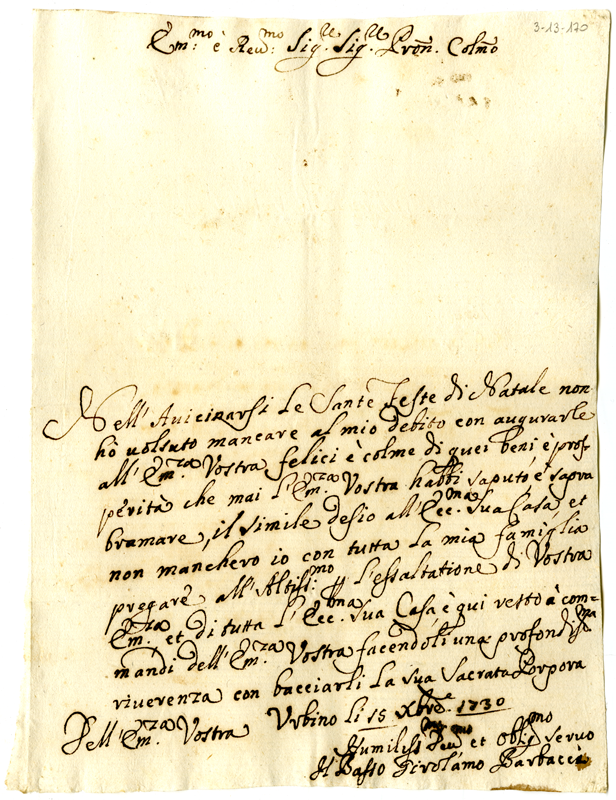 3-13-170
Em:mo è Reu:mo Sig.re Sig.re Pron. Colmo
Nell' Auicinarsi Le Sante Feste di Natale non
hò uolsuto mancare al mio debito con augurarle
all' Em.za Vostra felici è colme di quei beni è pros-
perità che mai l'Em.za Vostra habbi saputo è sapra
bramare, il simile desio all' Ecc.ma Sua Casa et
non manchero io con tutta la mia famiglia
pregare all' Altiss:mo p l'essaltatione di Vostra
Em.za et di tutta l'Ecc.ma Sua Casa è qui resto à com-
mandi dell' Em.za Vostra facendoli una profondis.ma
riuerenza con bacciarli la sua Sacrata Porpora
Dell' Em.za Vostra Urbino li 15 Xbre. 1730
Humiliss.mo Deu.mo et Oblig.mo seruo
Il Basso Girolamo Barbaccia